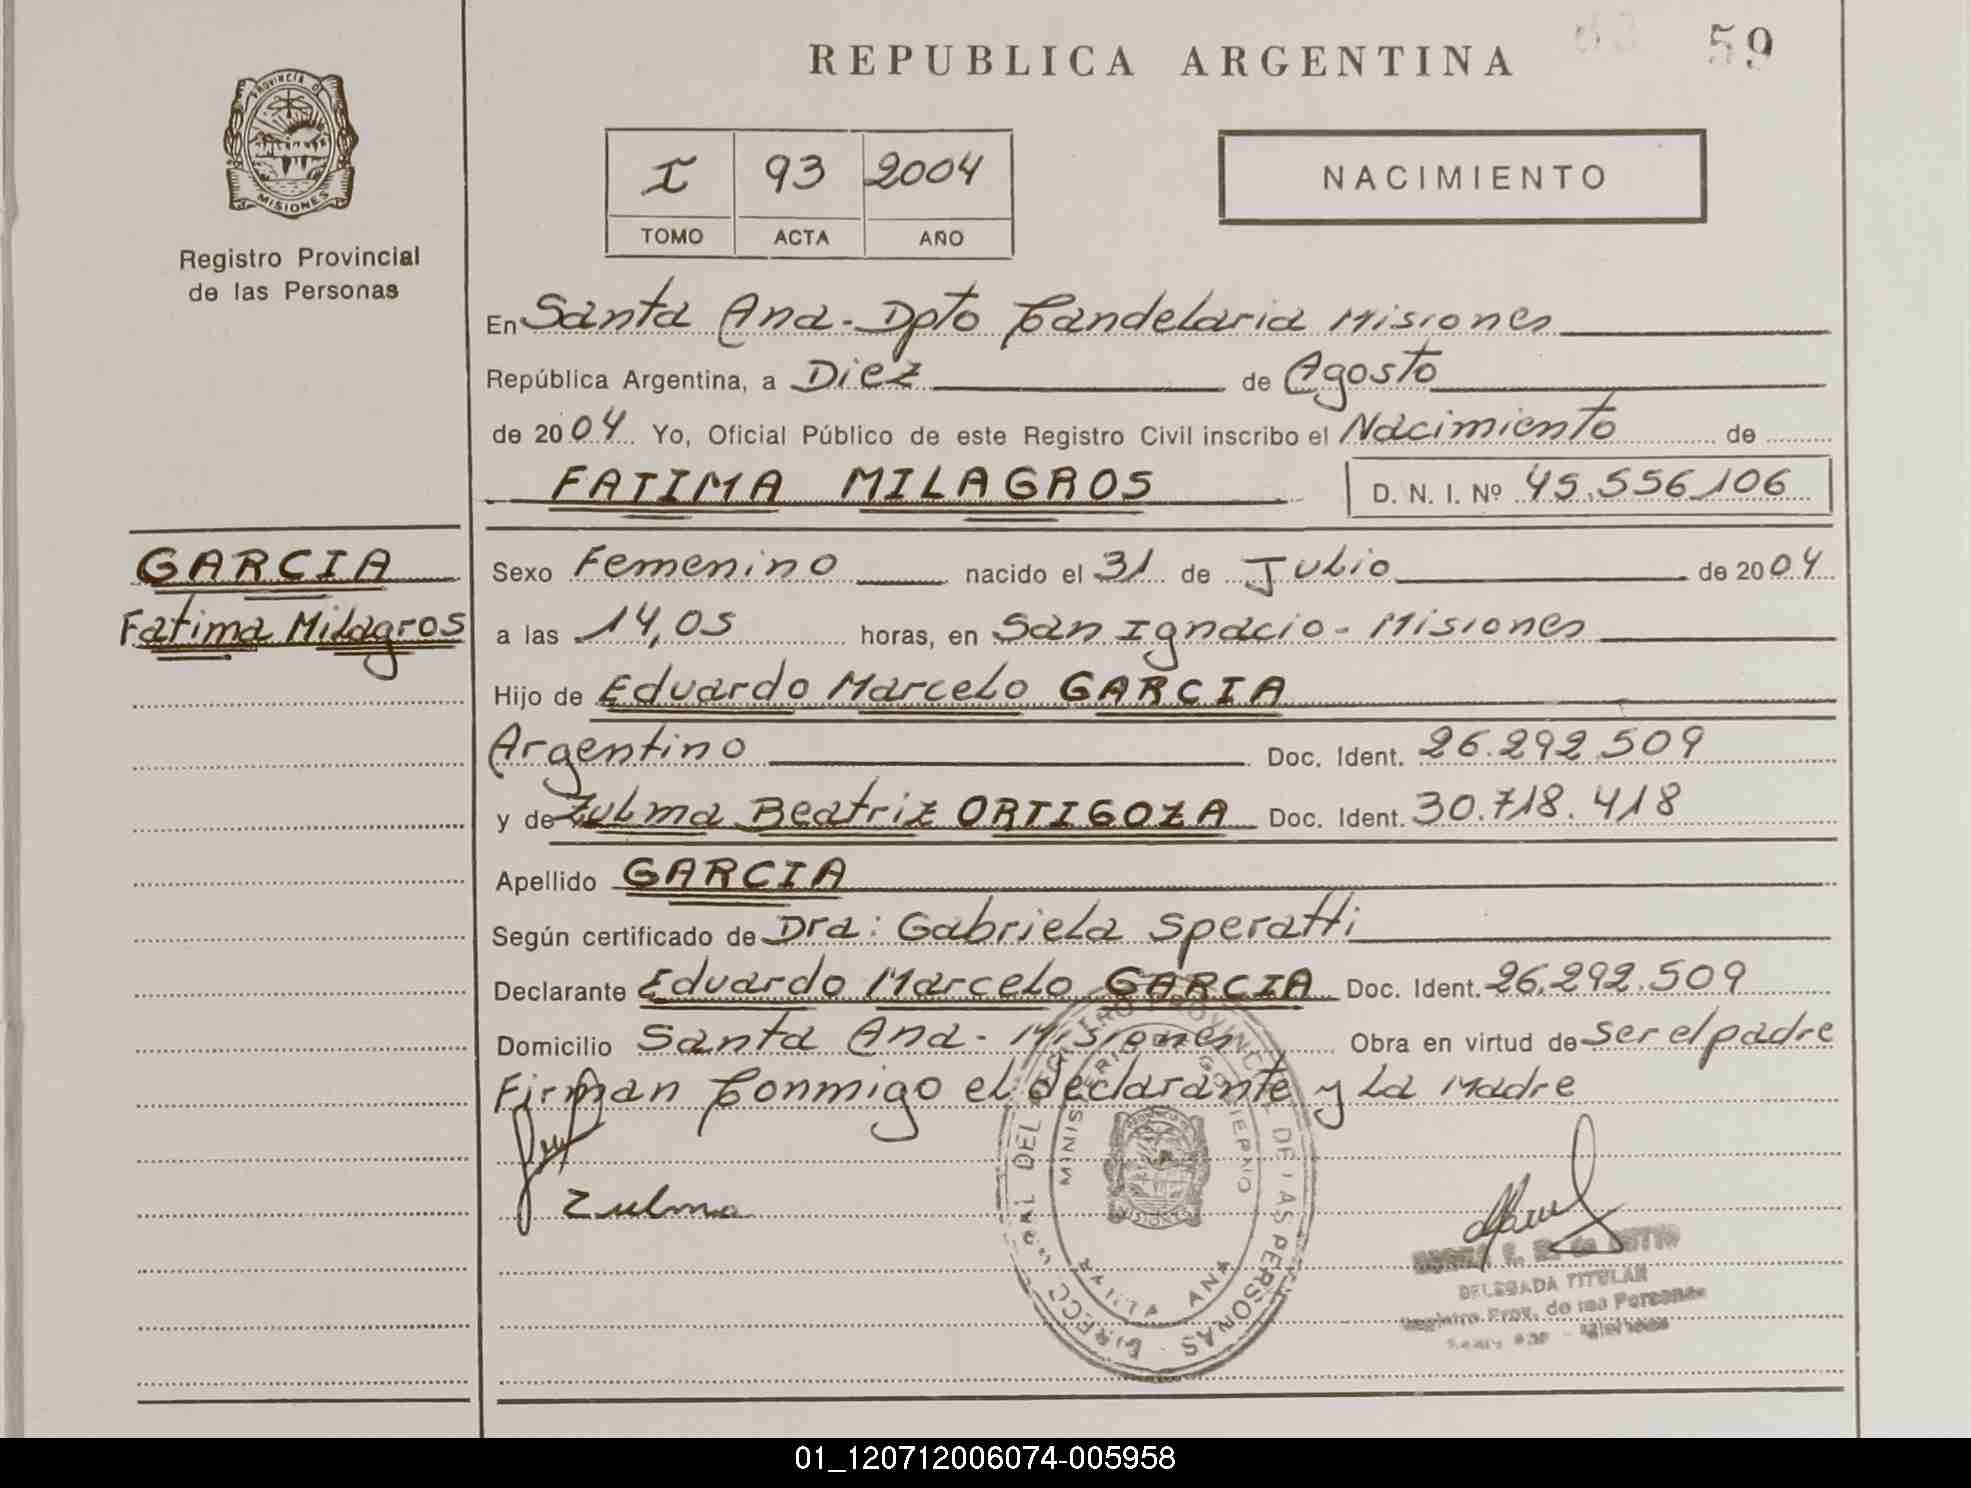 REPUBLICA ARGENTINA
59
PROVINCIA DE
MISIONES
Registro Provincial
de las Personas
I 93 2004
TOMO ACTA AÑO
NACIMIENTO
En Santa Ana - Dpto Candelaria Misiones
República Argentina, a Diez de Agosto
de 2004 Yo, Oficial Público de este Registro Civil inscribo el Nacimiento de
FATIMA MILAGROS D. N. I. Nº 45.556.106
GARCIA
Fatima Milagros
Sexo Femenino nacido el 31 de Julio de 2004
a las 14,05 horas, en San Ignacio - Misiones
Hijo de Eduardo Marcelo GARCIA
Argentino Doc. Ident. 26.292.509
y de Zulma Beatriz ORTIGOZA Doc. Ident. 30.718.418
Apellido GARCIA
Según certificado de Dra: Gabriela Speratti
Declarante Eduardo Marcelo GARCIA Doc. Ident. 26.292.509
Domicilio Santa Ana - Misiones Obra en virtud de ser el padre
Firman Conmigo el declarante y La Madre
Zulma
DEL REGISTRO PROVINCIAL DE LAS PERSONAS
MINISTERIO DE GOBIERNO
MISIONES
ANA
DELEGADA TITULAR
Registro Prov. de las Personas
Misiones
01_120712006074-005958